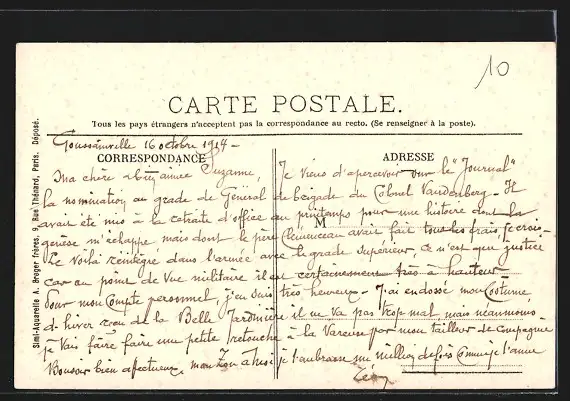 10
CARTE POSTALE.
Tous les pays étrangers n'acceptent pas la correspondance au recto. (Se renseigner à la poste).
Goussainville 16 octobre 1914 -
CORRESPONDANCE
ADRESSE
M
Ma chère aimée Suzanne, Je viens d'apercevoir sur le "Journal"
la nomination au grade de Général de brigade du Colonel Vandenberg - Il
avait été mis à la retraite d'office au printemps pour une histoire dont la
genèse m'échappe mais dont le père Clémenceau avait fait tous les frais, je crois -
Le voilà réintégré dans l'armée avec le grade supérieur ce n'est que justice
car au point de vue militaire il est certainement très à hauteur -
Pour mon compte personnel, j'en suis très heureux - J'ai endossé mon costume
d'hiver de la Belle Jardinière il ne va pas trop mal, mais néanmoins
je vais faire faire une petite retouche à la vareuse par mon tailleur de Compagnie
Bonsoir bien affectueux, je t'embrasse un million de fois comme je t'aime
Léon
Simi-Aquarelle A. Breger frères, 9, Rue Thénard, Paris. Déposé.